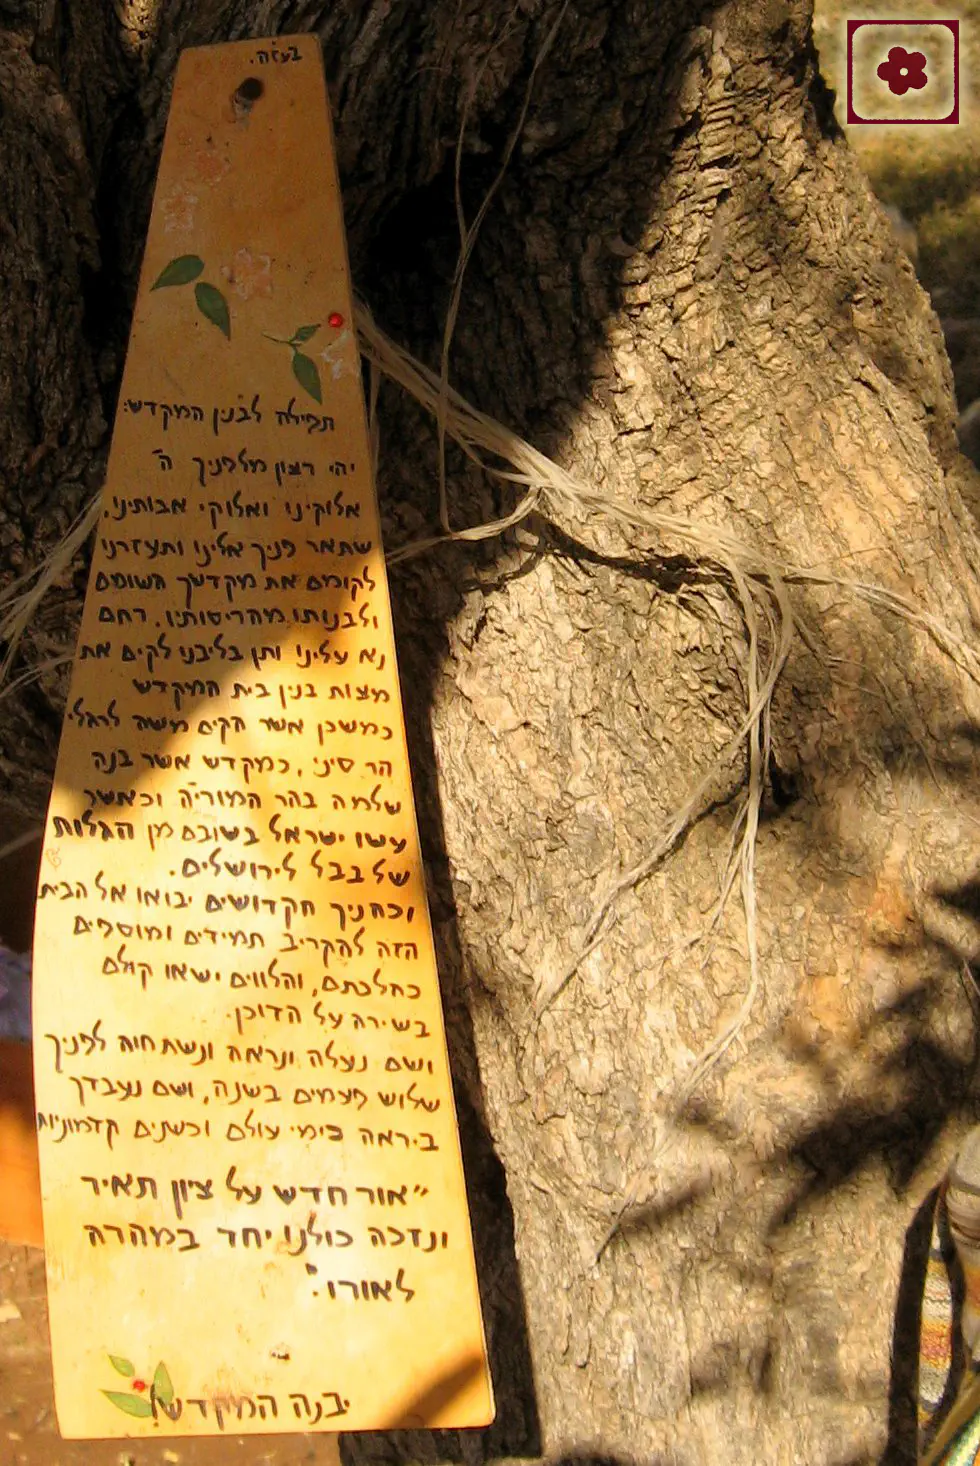 בעזה.
תפילה לבנין המקדש:
יהי רצון מלפניך ה'
אלוקינו ואלוקי אבותינו,
שתאר פניך אלינו ותעזרנו
לקומם את מקדשך השומם
ולבנותו מהריסותיו. רחם
נא עלינו ותן בליבנו לקים את
מצות בנין בית המקדש
כמשכן אשר הקים משה לרגלי
הר סיני, כמקדש אשר בנה
שלמה בהר המוריה וכאשר
עשו ישראל בשובם מן הגלות
של בבל לירושלים.
וכהניך הקדושים יבואו אל הבית
הזה להקריב תמידים ומוספים
כהלכתם, והלווים ישאו קולם
בשירה על הדוכן.
ושם נעלה ונראה ונשתחוה לפניך
שלוש פעמים בשנה, ושם נעבדך
ביראה כימי עולם וכשנים קדמוניות
"אור חדש על ציון תאיר
ונזכה כולנו יחד במהרה
לאורו".
יבנה המקדש!